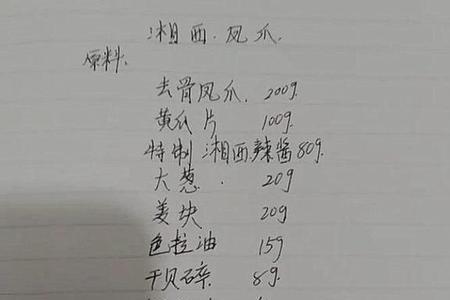 湘西凤爪.
原料:
去骨凤爪. 200g.
黄瓜片 100g.
特制湘西辣酱80g.
大葱. 20g
姜块 20g
色拉油 15g
干贝碎 8g.